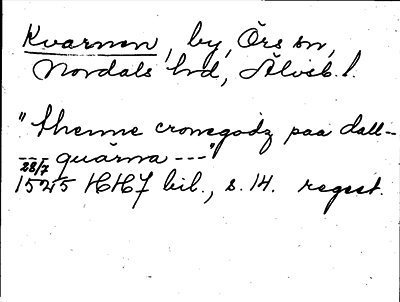 Kvarnen, by, Örs sn,
Nordals hd, Älvsb. l.
"thenne cronegodz paa dall-
--- quärna ---"
28/7
1545 HH7 bil., s. 14. regest.